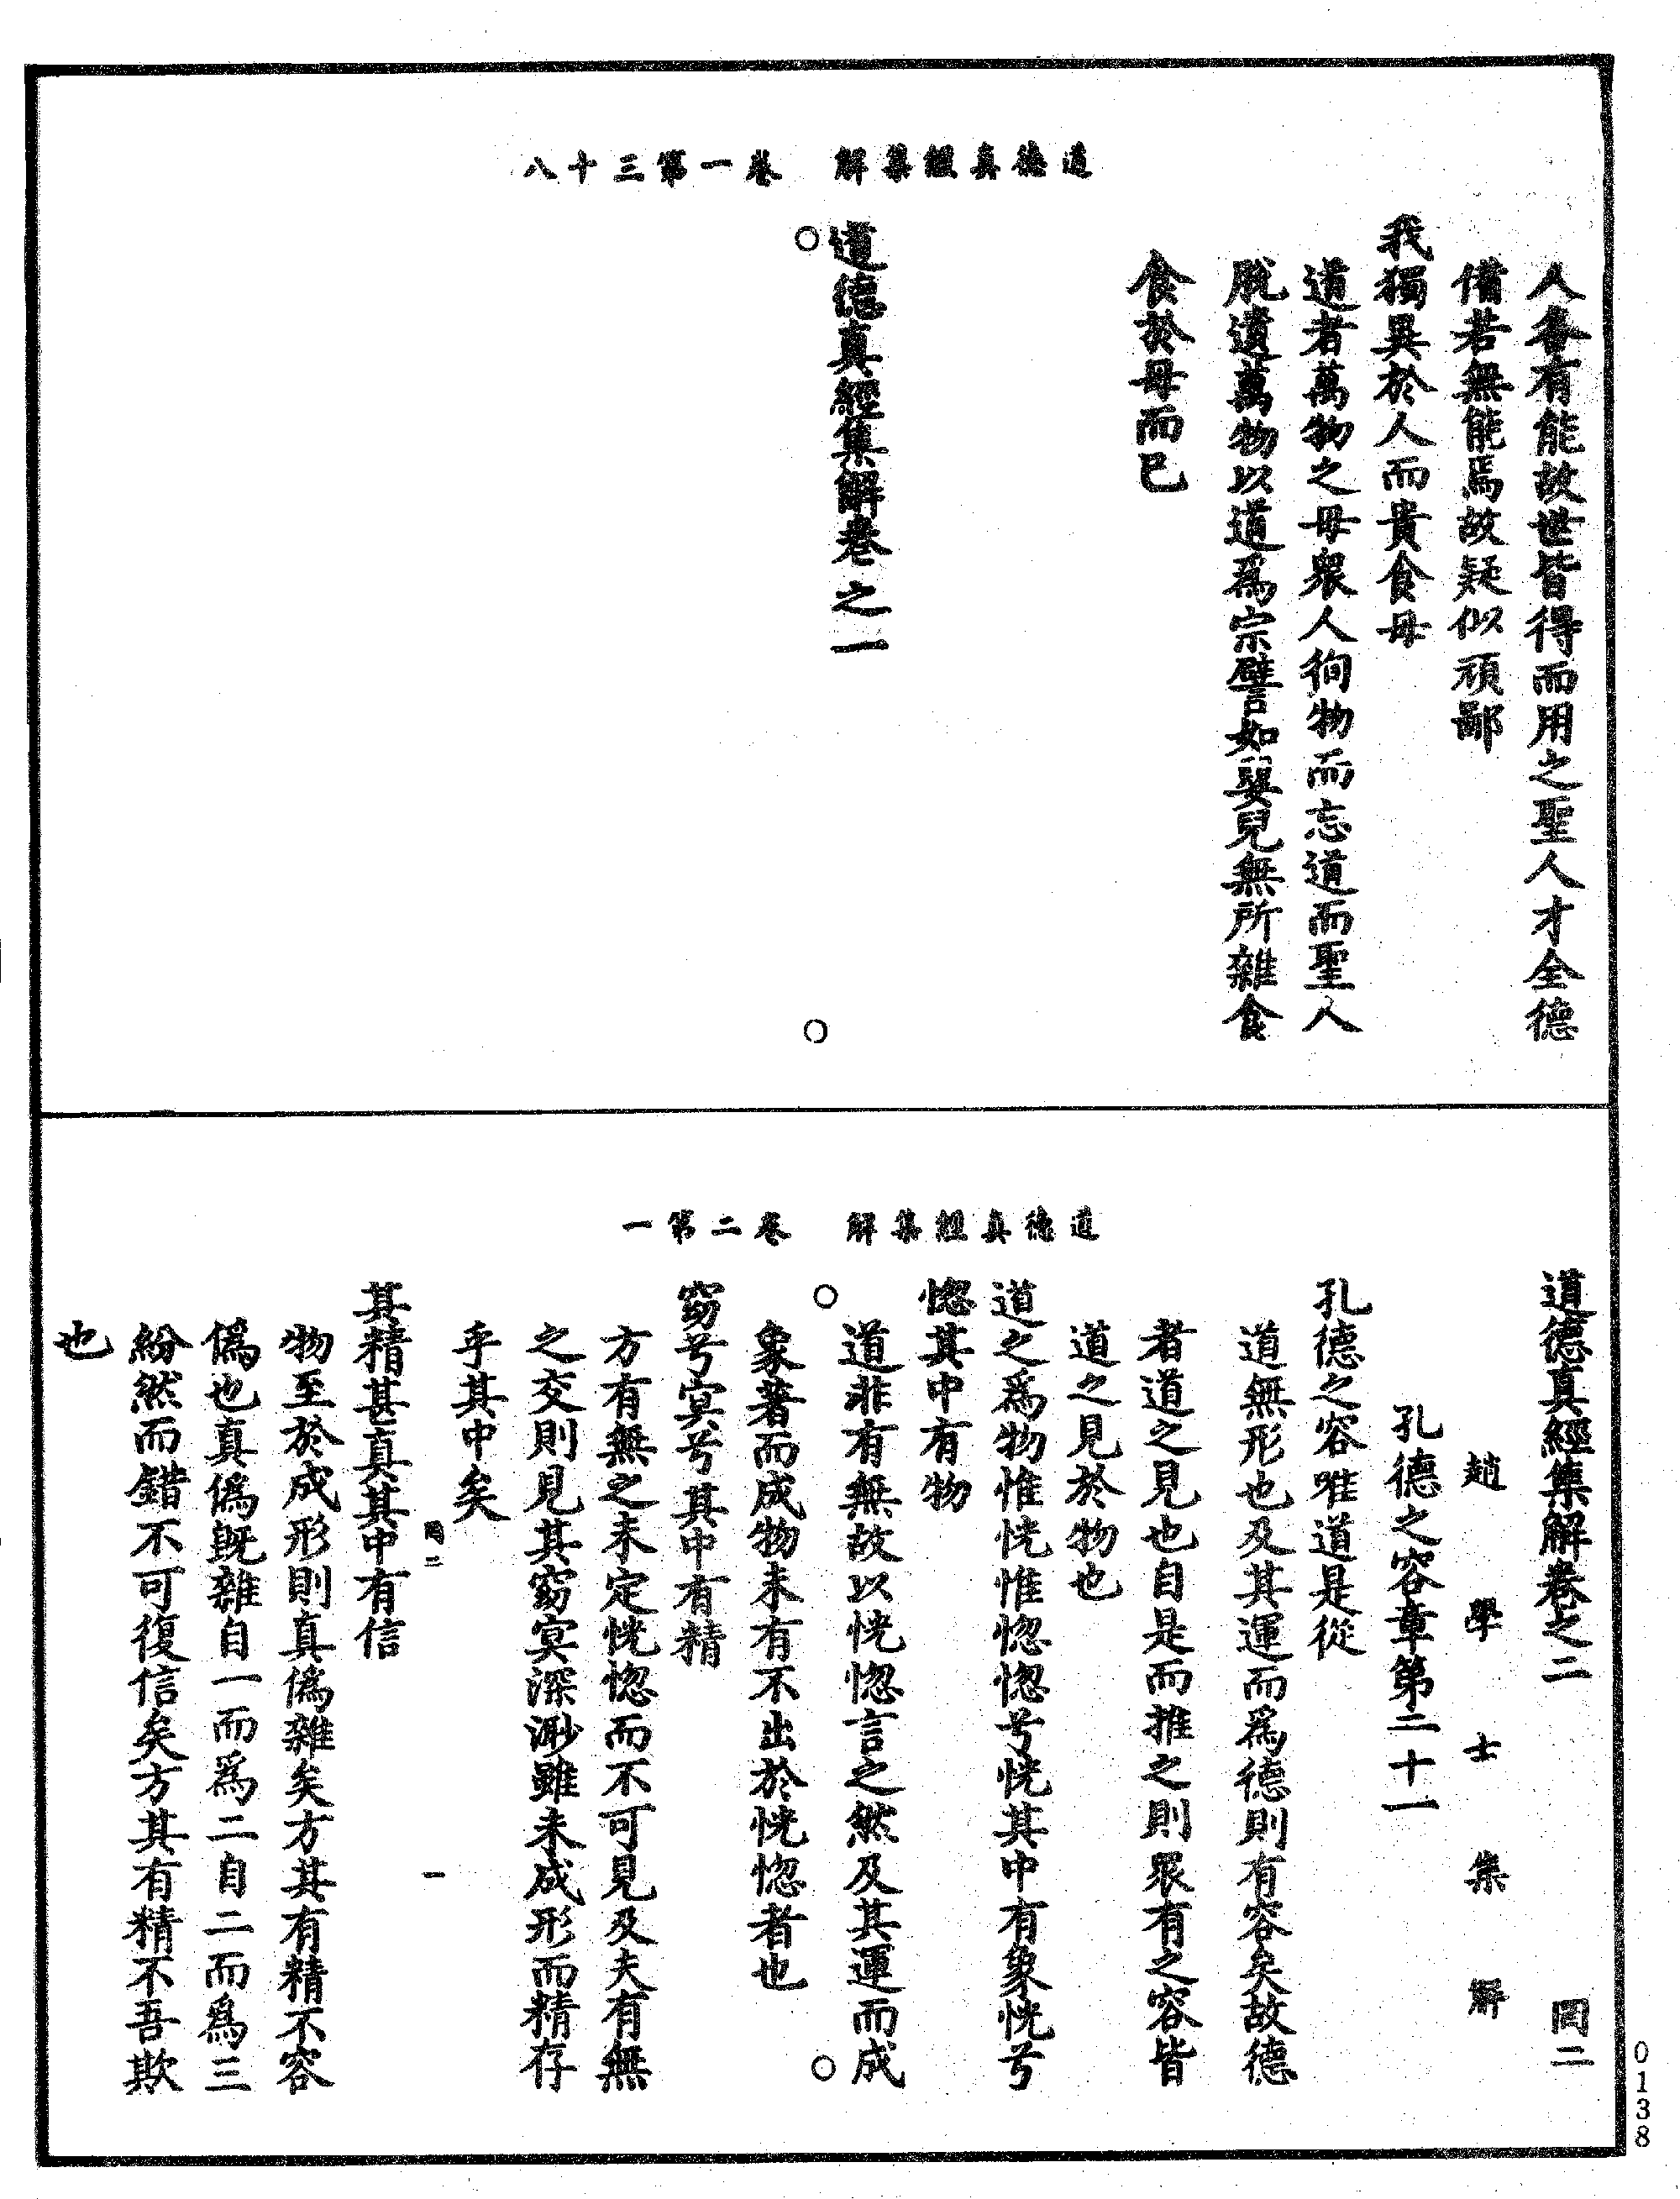 道德真經集解　卷一第三十八
人各有能故世皆得而用之聖人才全德
備若無能焉故疑似頑鄙
我獨異於人而貴食母
道者萬物之母衆人徇物而忘道而聖人
脫遺萬物以道爲宗譬如嬰兒無所雜食
食於母而已
道德真經集解卷之一
道德真經集解　卷二第一
道德真經集解卷之二　岡二
趙學士集解
孔德之容章第二十一
孔德之容唯道是從
道無形也及其運而爲德則有容矣故德
者道之見也自是而推之則衆有之容皆
道之見於物也
道之爲物惟恍惟惚惚兮恍其中有象恍兮
惚其中有物
道非有無故以恍惚言之然及其運而成
象著而成物未有不出於恍惚者也
窈兮冥兮其中有精
方有無之未定恍惚而不可見及夫有無
之交則見其窈冥深渺雖未成形而精存
乎其中矣
岡二　一
其精甚真其中有信
物至於成形則真僞雜矣方其有精不容
僞也真僞旣雜自一而爲二自二而爲三
紛然而錯不可復信矣方其有精不吾欺
也
0138